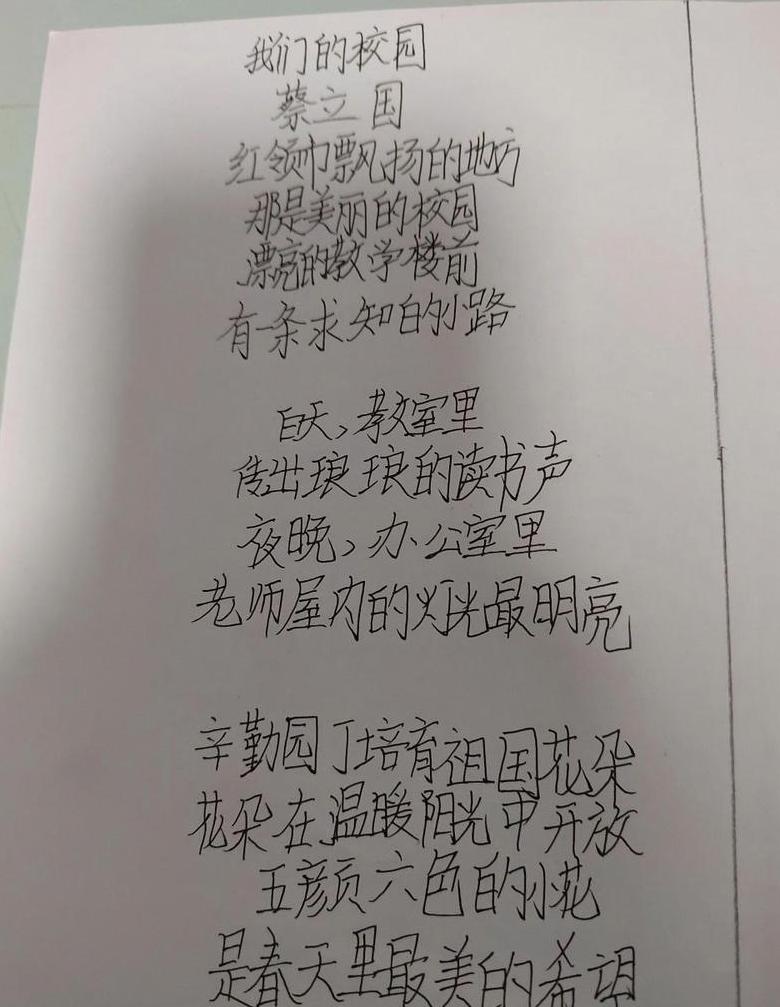 我们的校园
蔡立国
红领巾飘扬的地方
那是美丽的校园
漂亮的教学楼前
有一条求知的小路
白天,教室里
传出琅琅的读书声
夜晚,办公室里
老师屋内的灯光最明亮
辛勤园丁培育祖国花朵
花朵在温暖阳光中开放
五颜六色的小花
是春天里最美的希望